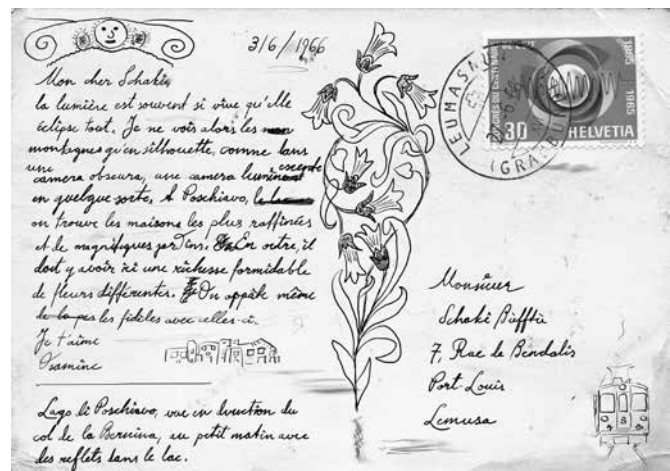 3/6/1966
Mon cher Schaki
la lumière est souvent si vive qu'elle
éclipse tout. Je ne vois alors les
montagnes qu'en silhouette, comme dans
une
camera obscura, une camera luminescente
en quelque sorte. A Poschiavo,
on trouve les maisons les plus raffinées
et de magnifiques jardins. En outre, il
doit y avoir ici une richesse formidable
de fleurs différentes. On appâte même
les fidèles avec celles-ci.
Je t'aime
Lago di Poschiavo, vue en direction du
col de la Bernina, au petit matin avec
des reflets dans le lac.
1865 1965
30 HELVETIA
Monsieur
Schaki
7, Rue de Bendalis
Port-Louis
Lemusa
8